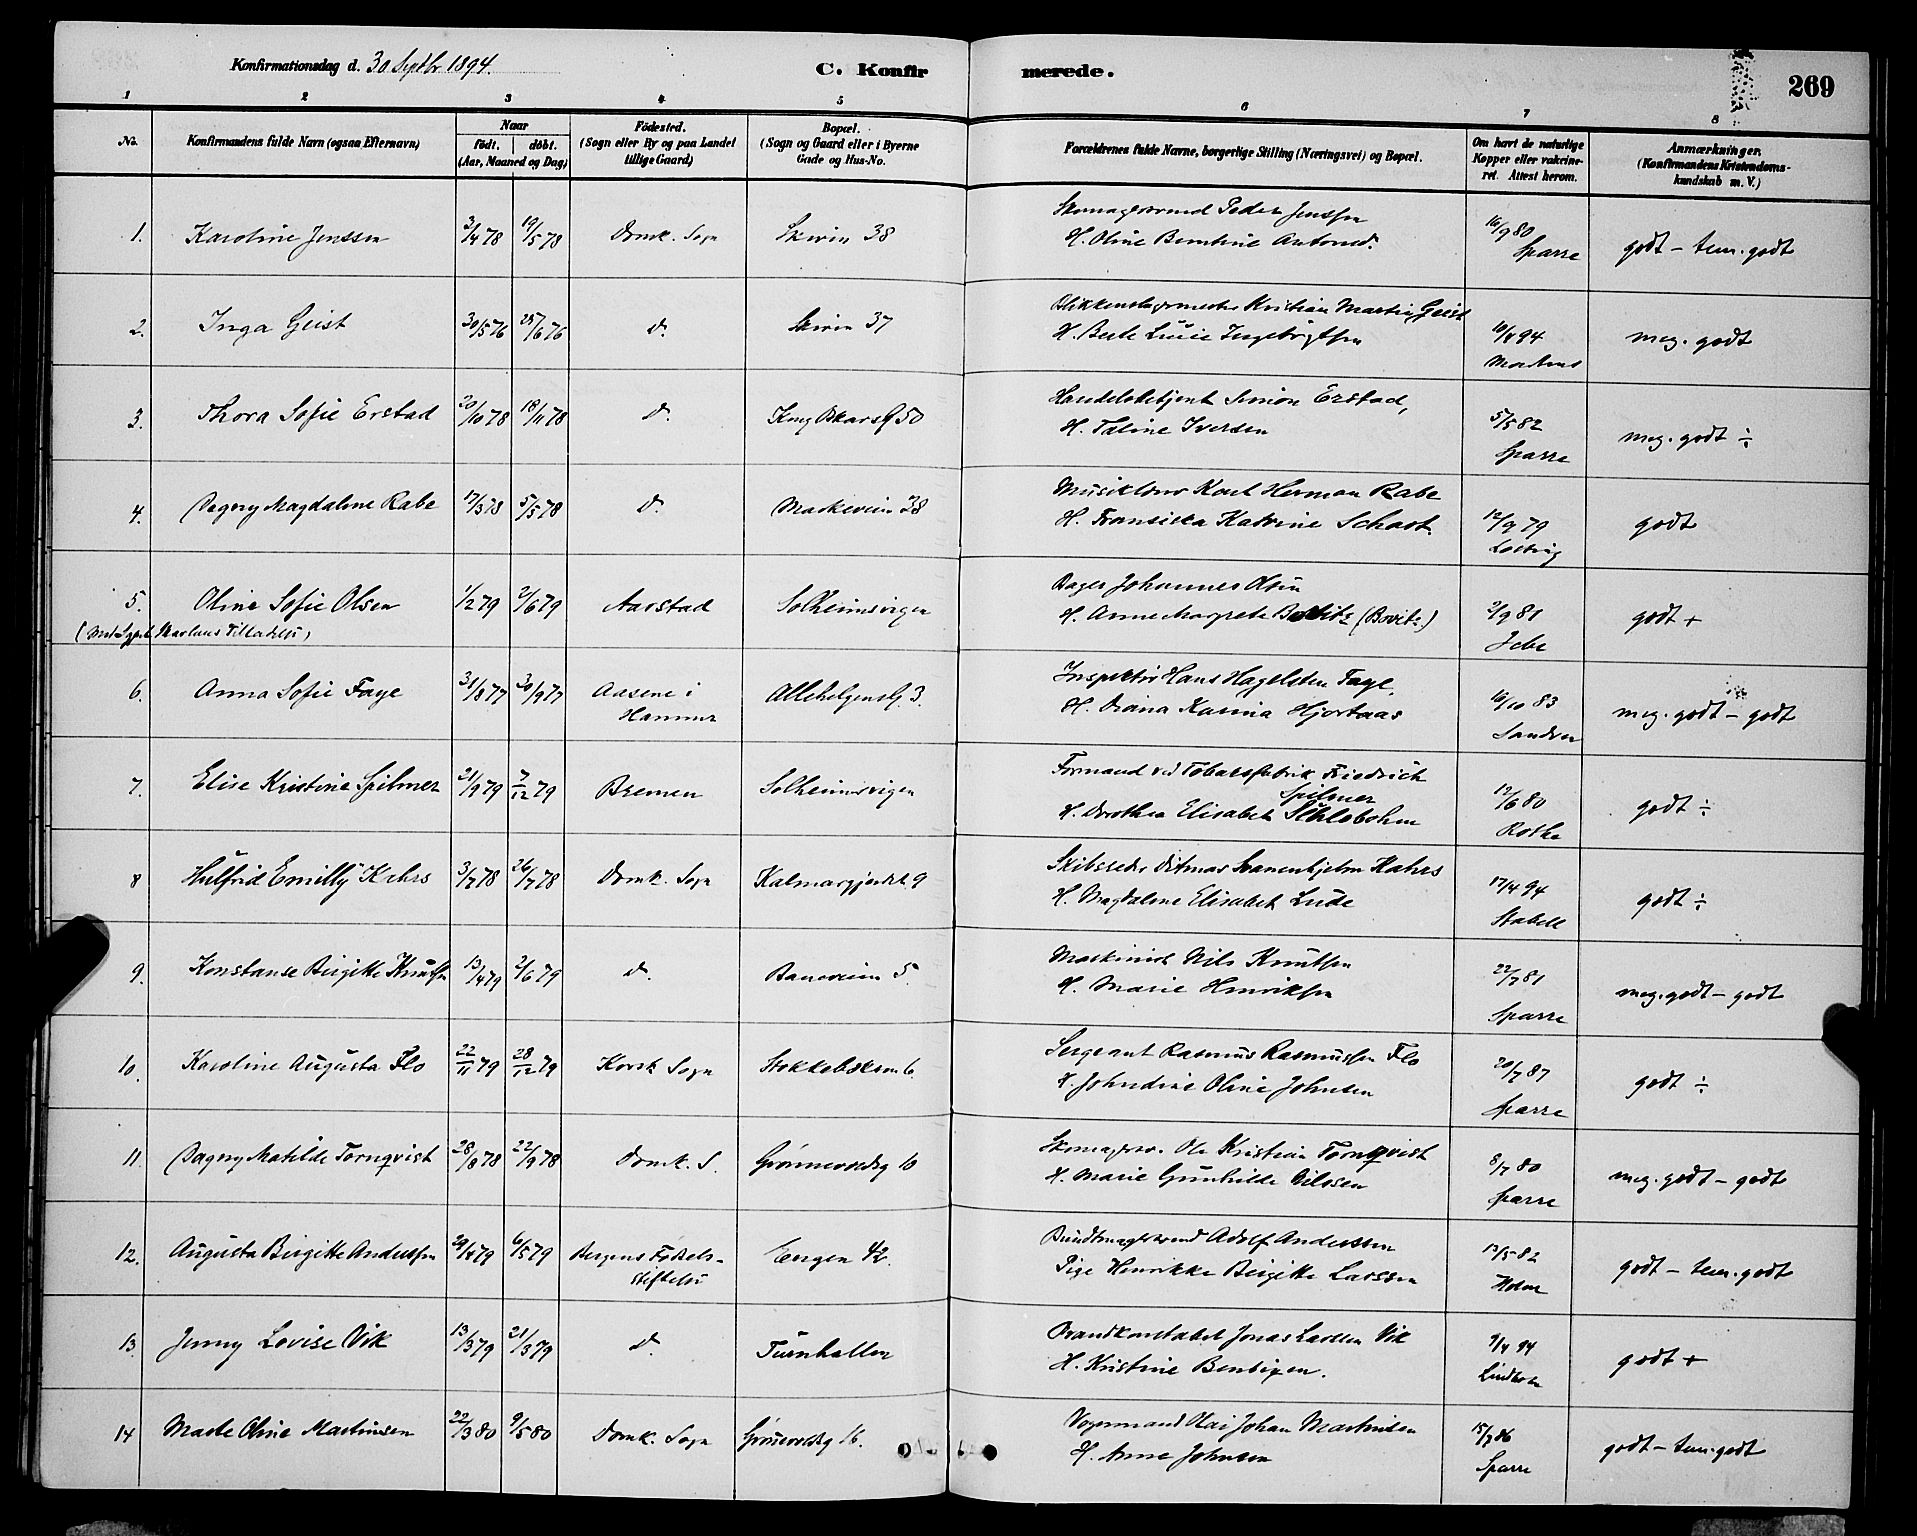 Konfirmationsdag d. 30 Septbr 1894.
C. Konfirmerede.
269
1 2 3 4 5 6 7 8
No.
Konfirmandens fulde Navn (ogsaa Efternavn)
Naar
födt. döbt.
(Aar, Maaned og Dag)
Födested.
(Sogn eller By og paa Landet
tillige Gaard)
Bopæl.
(Sogn og Gaard eller i Byerne
Gade og Hus-No.
Forældrenes fulde Navne, borgerlige Stilling (Næringsvei) og Bopæl.
Om havt de naturlige
Kopper eller vakcine-
ret. Attest herom.
Anmærkninger.
(Konfirmandens Kristendoms-
kundskab m. V.)
1. Karoline Jenssen 3/4 78 19/5 78 Domk. Sogn Skivin 38
Skomagersvend Peder Jenssen
H. Oline Berntine Antonsd. 16/9 80 Sparre
godt - tem. godt
2. Inga Geist 30/5 76 25/6 76 do. Skivin 37
Blikkenslagermester Kristian Martin Geist
H. Berte Lucie Ingebrigtsen 10/4 94 Martens
meg. godt
3. Thora Sofie Erstad 20/10 78 18/11 78 do. Kong Oskarsg 50
Handelsbetjent Simon Erstad,
H. Taline Iversen 5/5 82 Sparre
meg. godt ÷
4. Dagny Magdalene Rabe 17/3 78 5/5 78 do. Markeveien 38
Musiklærer Karl Herman Rabe
H. Fransiska Katrine Schast. 12/9 79
godt
5. Oline Sofie Olsen 1/2 79 2/6 79 Aarstad Solheimsvigen
Bager Johannes Olsen
H. Anne Margrete (Bovitz) 2/9 81 Jebe
godt +
6. Anna Sofie Faye 31/8 77 30/9 77 Aasene i
Hammer Allehelgensg. 3.
Inspektør Hans Hagelsten Faye,
H. Diana Karina Hjortaas 16/10 83 Sandven
meg. godt - godt
7. Elise Kristine Spilmer 21/9 79 7/12 79 Bremen Solheimsvigen
Formand ved Tobaksfabrik Friedrich
Spilmer
H. Dorothea Elisabet Schlobohm 12/6 80 Rothe
godt ÷
8 Hulfrid Emilly Kahrs 3/7 78 26/7 78 Domk. Sogn Kalmargjerdet 9
Skibsreder Ditmar Svanenhjelm Kahrs
H. Magdalene Elisabet Lude 17/4 94 Stabell
godt ÷
9. Konstanse Birgitte Knutsen 13/4 79 2/6 79 do. Baneveien 5.
Maskinist Nils Knutsen
H. Marie Henriksen 22/7 81 Sparre
meg. godt - godt
10. Karoline Augusta Flo 22/11 79 28/12 79 Korsk Sogn Stokkebækken 6.
Sergeant Rasmus Rasmussen Flo
H. Johndine Oline Johnsen 20/7 87 Sparre
godt ÷
11. Dagny Matilde Tornqvist 28/8 78 22/9 78 Domk. S. Grønnevoldsg 10
Skomagersv. Ole Kristian Tornqvist
H. Marie Gunhilde Nilssen 8/7 80 Sparre
meg. godt - godt
12. Augusta Birgitte Anderssen 29/4 79 6/5 79 Bergens Fødsels-
stiftelse Engen 42.
Bundtmagersvend Adolf Anderssen
Pige Henrikke Birgitte Larssen 13/5 82 Holm
godt - tem. godt
13. Jenny Lovise Vik 13/3 79 21/3 79 do. Turnhallen
Brandkonstabel Jonas Larssen Vik
H. Kristine Bentsen. 9/4 94 Lindholm
godt +
14 Marte Oline Martinsen 22/3 80 9/5 80 Domk. Sogn Grønevoldsg 16.
Vognmand Olai Johan Martinsen
H. Anne Johnsen 15/7 86 Sparre
godt - tem. godt